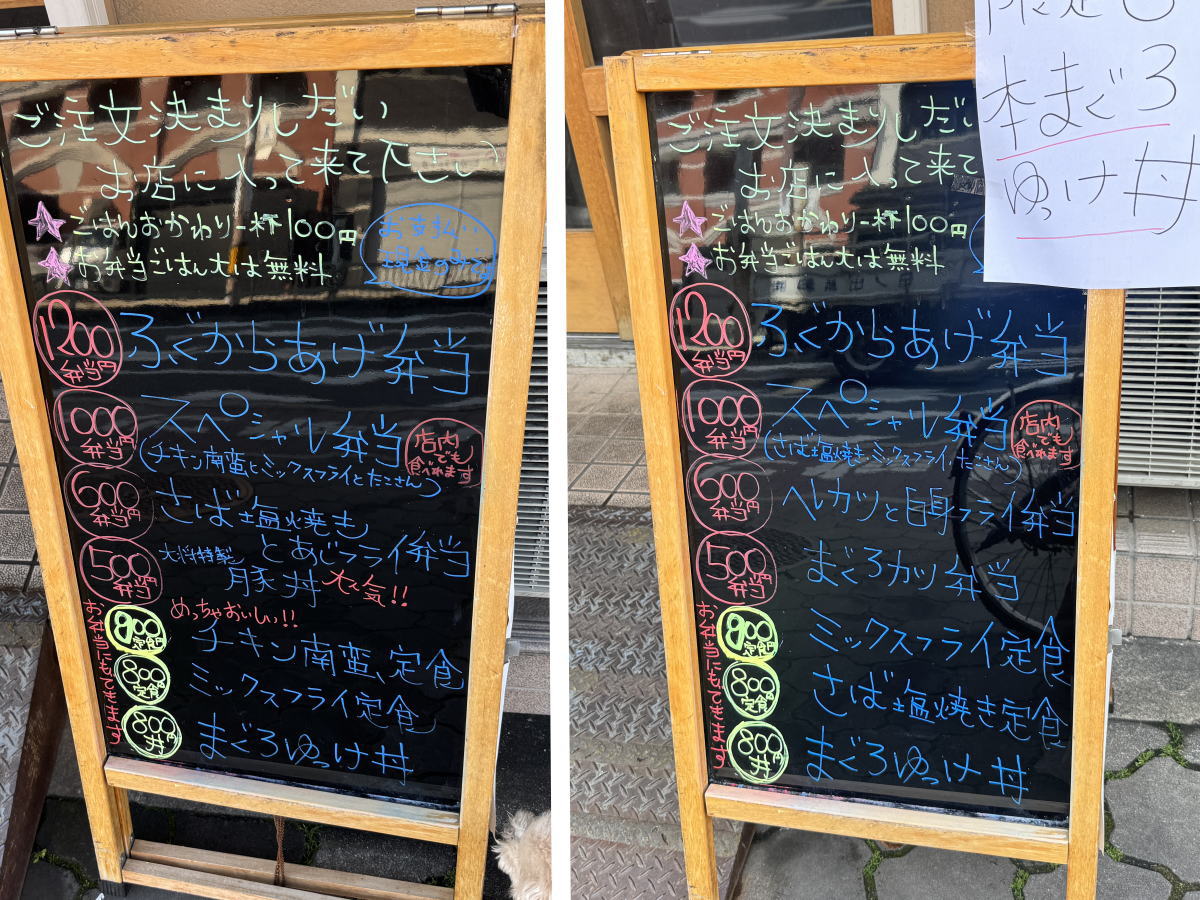 ご注文決まりしだい
お店に入って来て下さい
ごはんおかわり一杯100円
お弁当ごはん大は無料
お支払い
現金のみです
1200円
弁当
ふぐからあげ弁当
1000円
弁当
スペシャル弁当
(チキン南蛮とミックスフライとたこさん)
店内
でも
食べれます
600円
弁当
さば塩焼き
とあじフライ弁当
500円
弁当
大将特製
豚丼 大人気!!
めっちゃおいしい!!
お弁当にもできます
800円
定食
チキン南蛮定食
800円
定食
ミックスフライ定食
800円
丼
まぐろゆっけ丼
ご注文決まりしだい
お店に入って来て
ごはんおかわり一杯100円
お弁当ごはん大は無料
本まぐろ
ゆっけ丼
1200円
弁当
ふぐからあげ弁当
1000円
弁当
スペシャル弁当
(さば塩焼き、ミックスフライ、たこさん)
店内
でも
食べれます
600円
弁当
ヘレカツと白身フライ弁当
500円
弁当
まぐろカツ弁当
お弁当にもできます
800円
定食
ミックスフライ定食
800円
定食
さば塩焼き定食
800円
丼
まぐろゆっけ丼